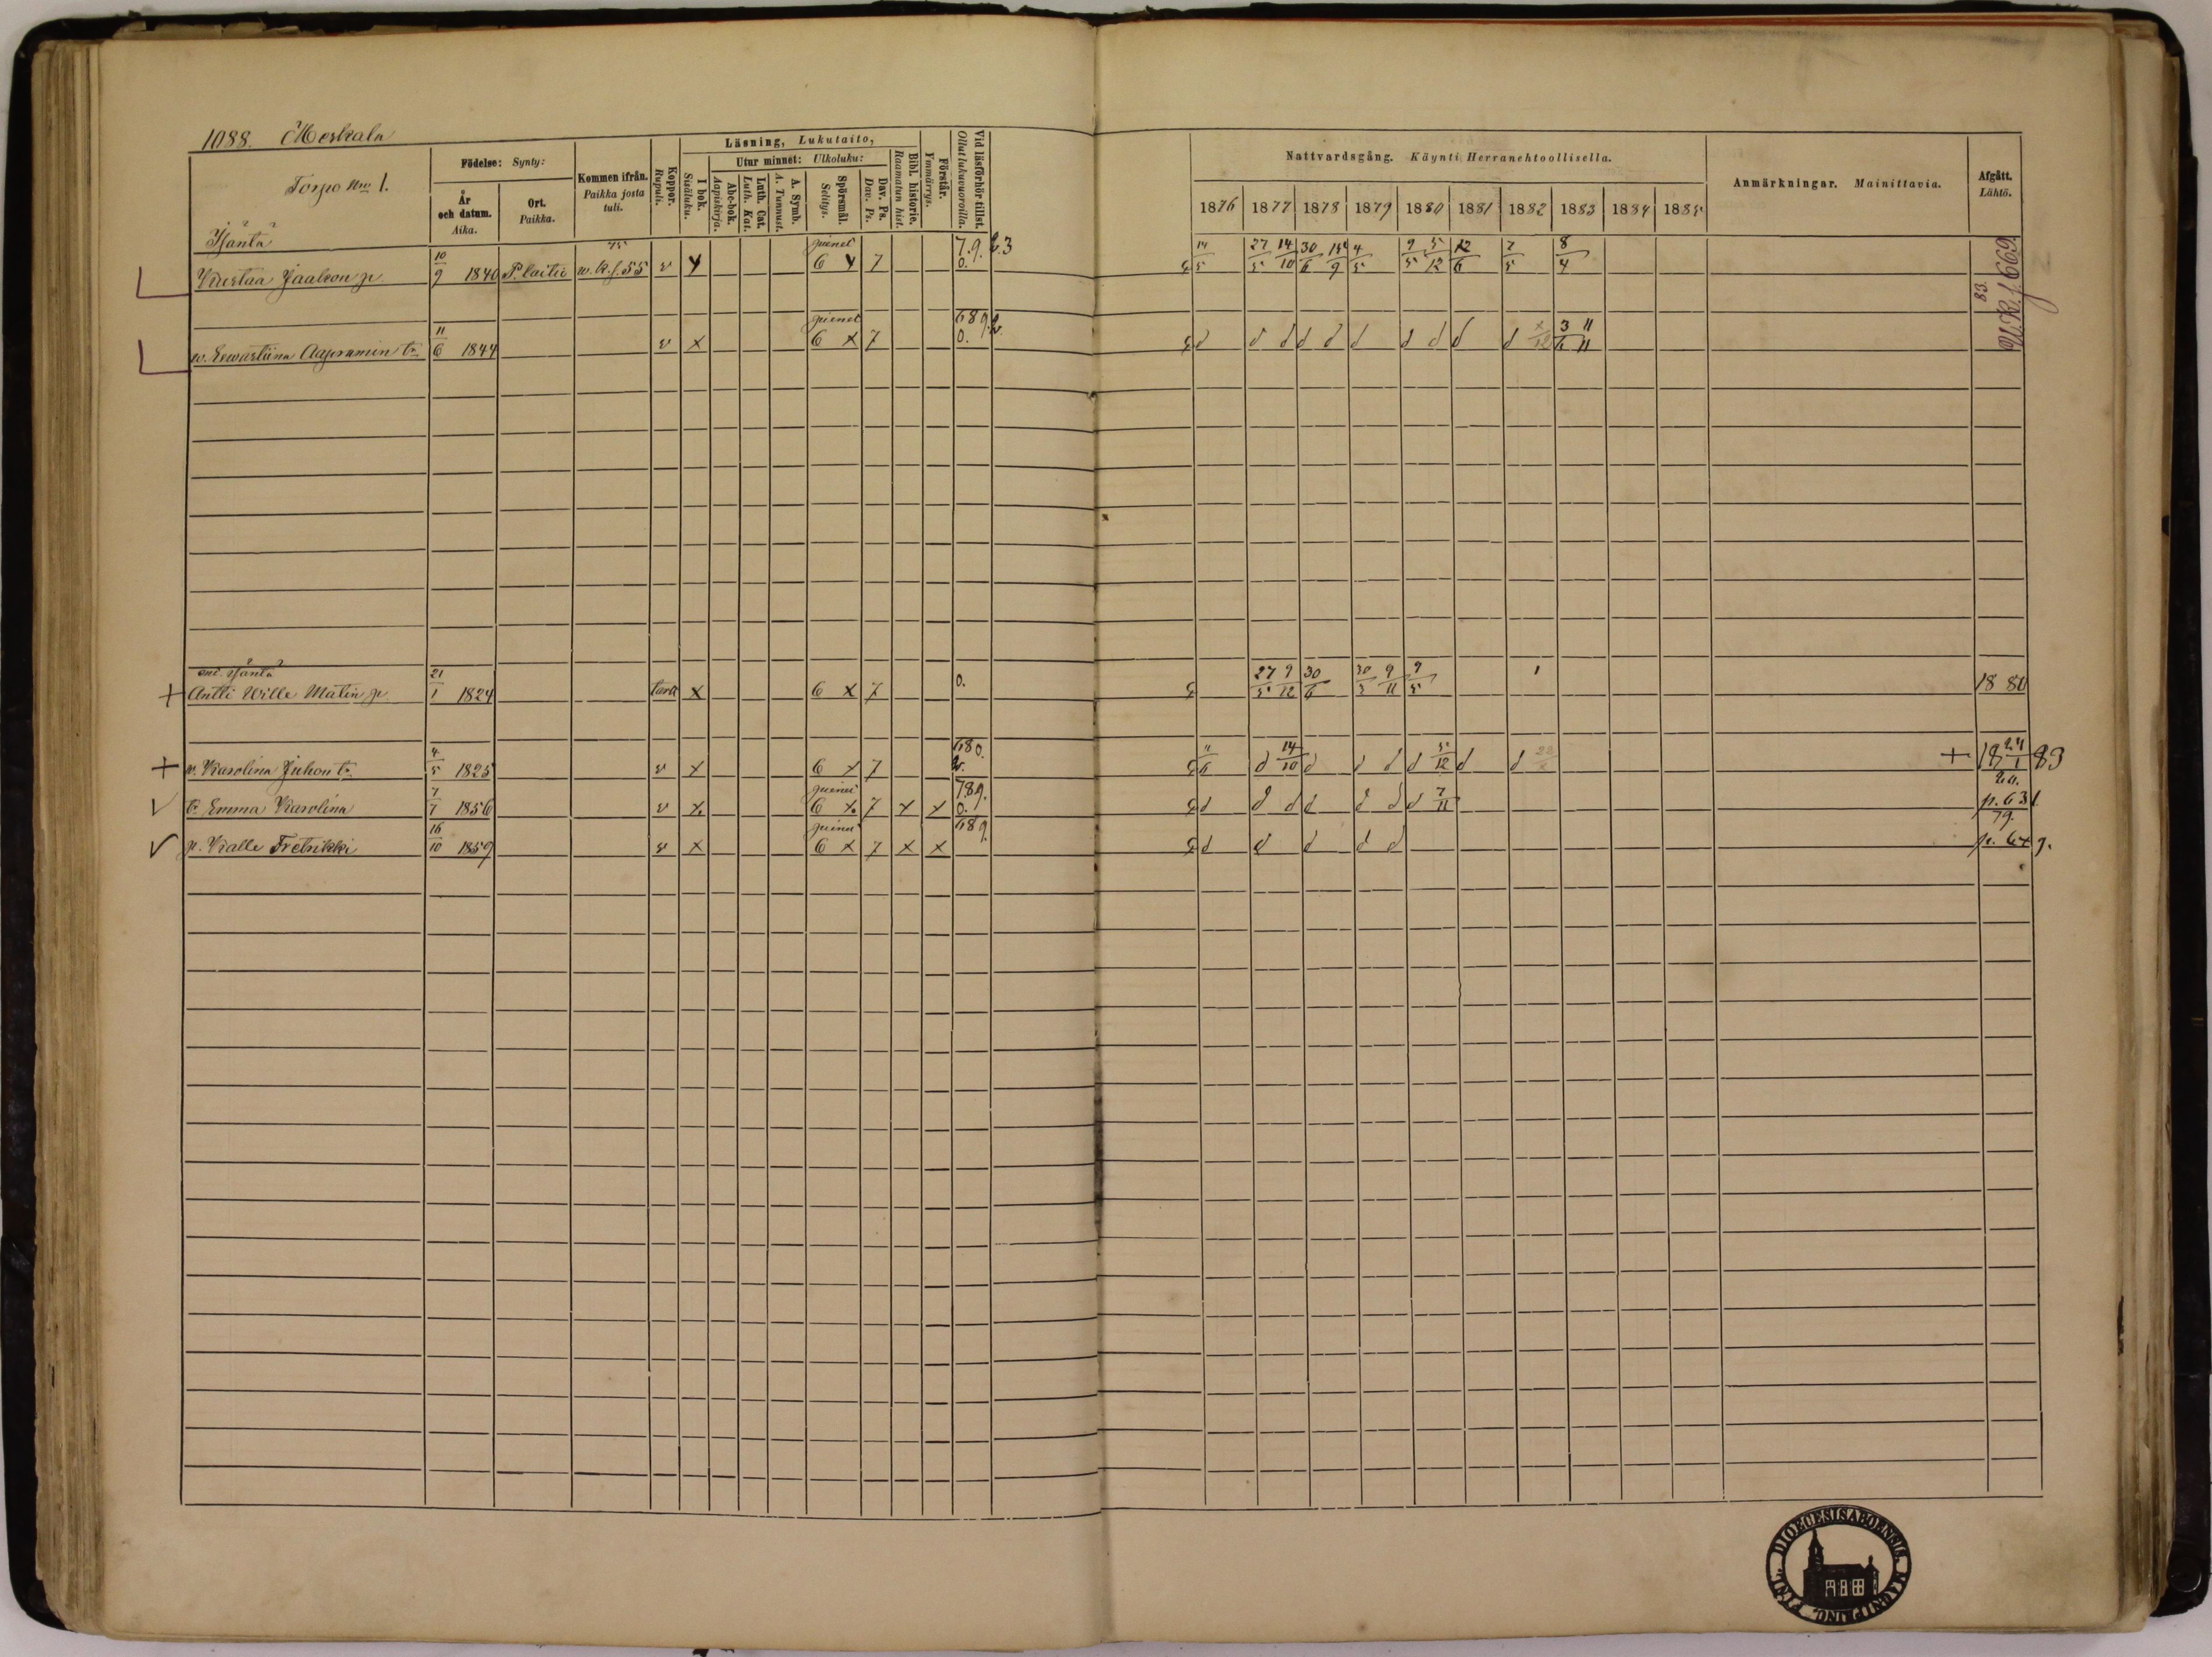 1088.
Torpo No 1.
Födelse: Synty:
År och datum. Aika.
Ort. Paikka.
Kommen ifrån. Paikka josta tuli.
Koppor. Rupuli.
Läsning, Lukutaito,
I bok. Sisäluku.
Utur minnet: Ulkoluku:
Abc-bok. Aapiskirja.
Luth. Cat. Luth. Kat.
A. Symb. A. Tunnust.
Spörsmål. Selitys.
Dav. Ps. Dav. Ps.
Bibl. historie. Raamatun hist.
Förstår. Ymmärrys.
Vid läsförhör tillst. Ollut lukuvuoroilla.
Nattvardsgång. Käynti Herranehtoollisella.
1876 1877 1878 1879 1880 1881 1882 1883 1884 1885
Anmärkningar. Mainittavia.
Afgått. Lähtö.
Isäntä
Kustaa Jaakon p. 10/9 1840 P. laitio 75 w. K. s. 55 v pienet 6 7 7.9. 0. 14/5 27/5 14/10 30/6 4/5 9/5 5/12 12/6 7/5 8/4
11/6 1844 v x pienet 6 x 7 689. 0. 3/6 11/11
83.
ent. isäntä
+ Antti Wille Matin p. 21/1 1824 x 6 x 7 0. 27/5 9/12 30/6 30/3 9/11 9/5 1880
+ w. Karolina Juhon t. 4/5 1825 v x 6 x 7 680. 11/6 14/10 5/12 + 18 24/1 83
t. Emma Karolina 7/7 1856 v x pienet 6 x 7 x x 789. 0. 7/11 p. 631.
p. Kalle Fretrikki 16/10 1859 v x 6 x 7 x x 689. 79.
DIOECESIS ABOENSIS. MAGNI PRINC. FINL.